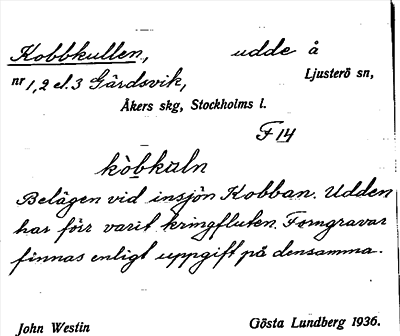 Kobbkullen, udde å
nr 1, 2 el. 3 Gärdsvik, Ljusterö sn,
Åkers skg, Stockholms l.
F 14
kòbkuln
Belägen vid insjön Kobban. Udden
har förr varit kringfluten. Forngravar
finnas enligt uppgift på densamma.
John Westin Gösta Lundberg 1936.